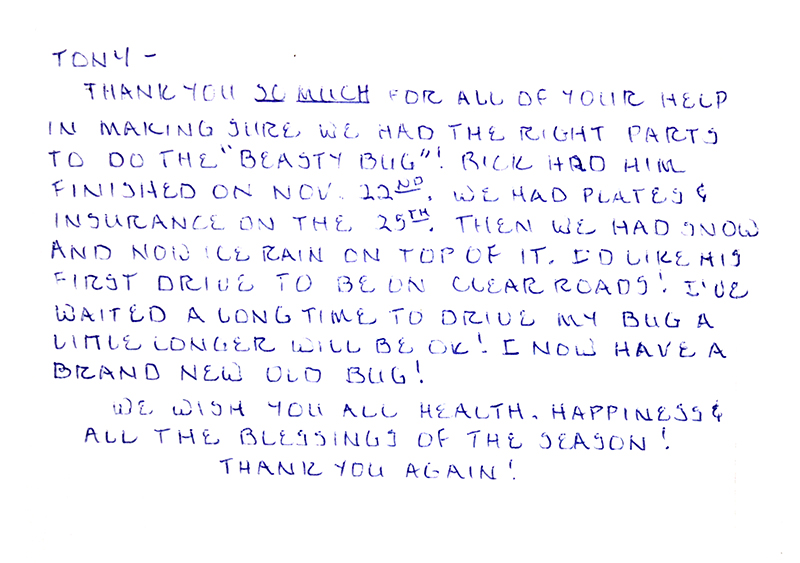 TONY -
THANK YOU SO MUCH FOR ALL OF YOUR HELP
IN MAKING SURE WE HAD THE RIGHT PARTS
TO DO THE "BEASTY BUG"! RICK HAD HIM
FINISHED ON NOV. 22ND. WE HAD PLATES &
INSURANCE ON THE 25TH. THEN WE HAD SNOW
AND NOW ICE RAIN ON TOP OF IT. I'D LIKE HIS
FIRST DRIVE TO BE ON CLEAR ROADS! I'VE
WAITED A LONG TIME TO DRIVE MY BUG A
LITTLE LONGER WILL BE OK! I NOW HAVE A
BRAND NEW OLD BUG!
WE WISH YOU ALL HEALTH, HAPPINESS &
ALL THE BLESSINGS OF THE SEASON!
THANK YOU AGAIN!